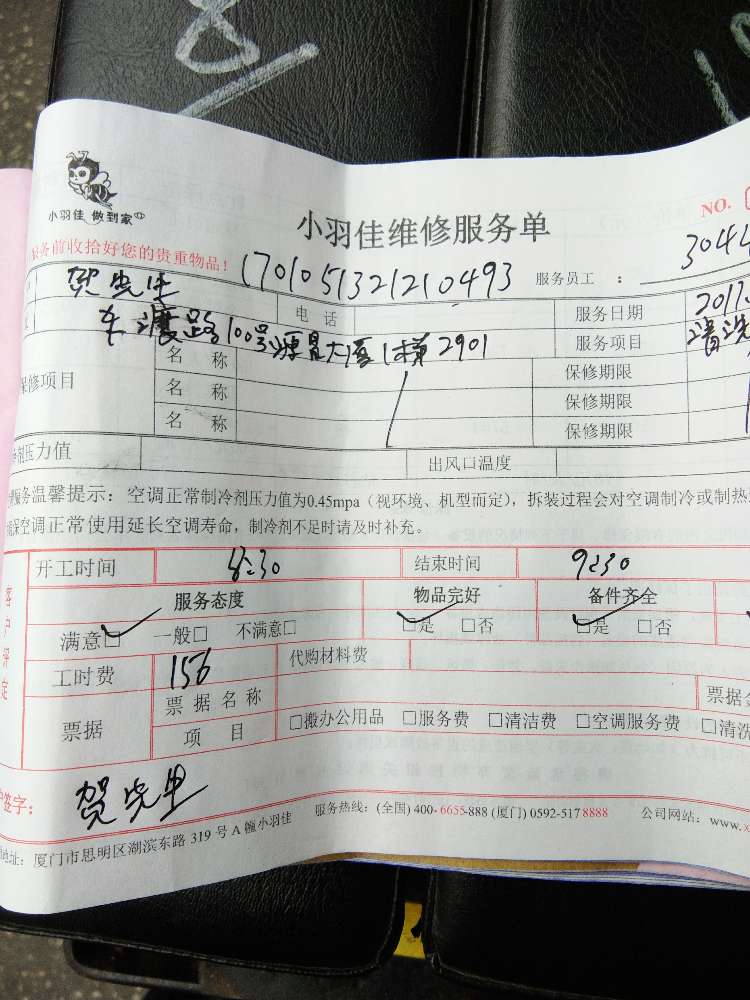 8
小羽佳 做到家
小羽佳维修服务单
NO.
服务前收拾好您的贵重物品！
1701051321210493
服务员工：
3044
贺先生
电话
服务日期
2017.
车渡路100号源昌大厦1梯2901
服务项目
清洗
保修项目
名称
保修期限
名称
保修期限
名称
保修期限
剂压力值
出风口温度
服务温馨提示：空调正常制冷剂压力值为0.45mpa（视环境、机型而定），拆装过程会对空调制冷或制热
确保空调正常使用延长空调寿命，制冷剂不足时请及时补充。
客户评定
开工时间
8:30
结束时间
9:30
服务态度
物品完好
备件齐全
满意□ 一般□ 不满意□
□是 □否
□是 □否
工时费
156
代购材料费
票据
票据名称
票据
项目
□搬办公用品 □服务费 □清洁费 □空调服务费 □清洗
户签字：
贺先生
地址：厦门市思明区湖滨东路 319 号 A 幢小羽佳
服务热线：(全国) 400-6655-888 (厦门) 0592-5178888
公司网站：www.x